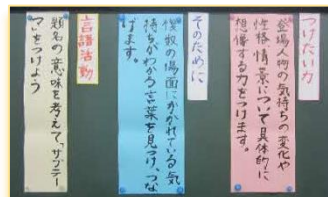 つけたい力
登場人物の気持ちの変化や
性格、情景について具体的に
想像する力をつけます。
そのために
複数の場面にかかれている気
持ちがわかる言葉を見つけ、つな
げます。
言語活動
題名の意味を考えて、サブテー
マをつけよう